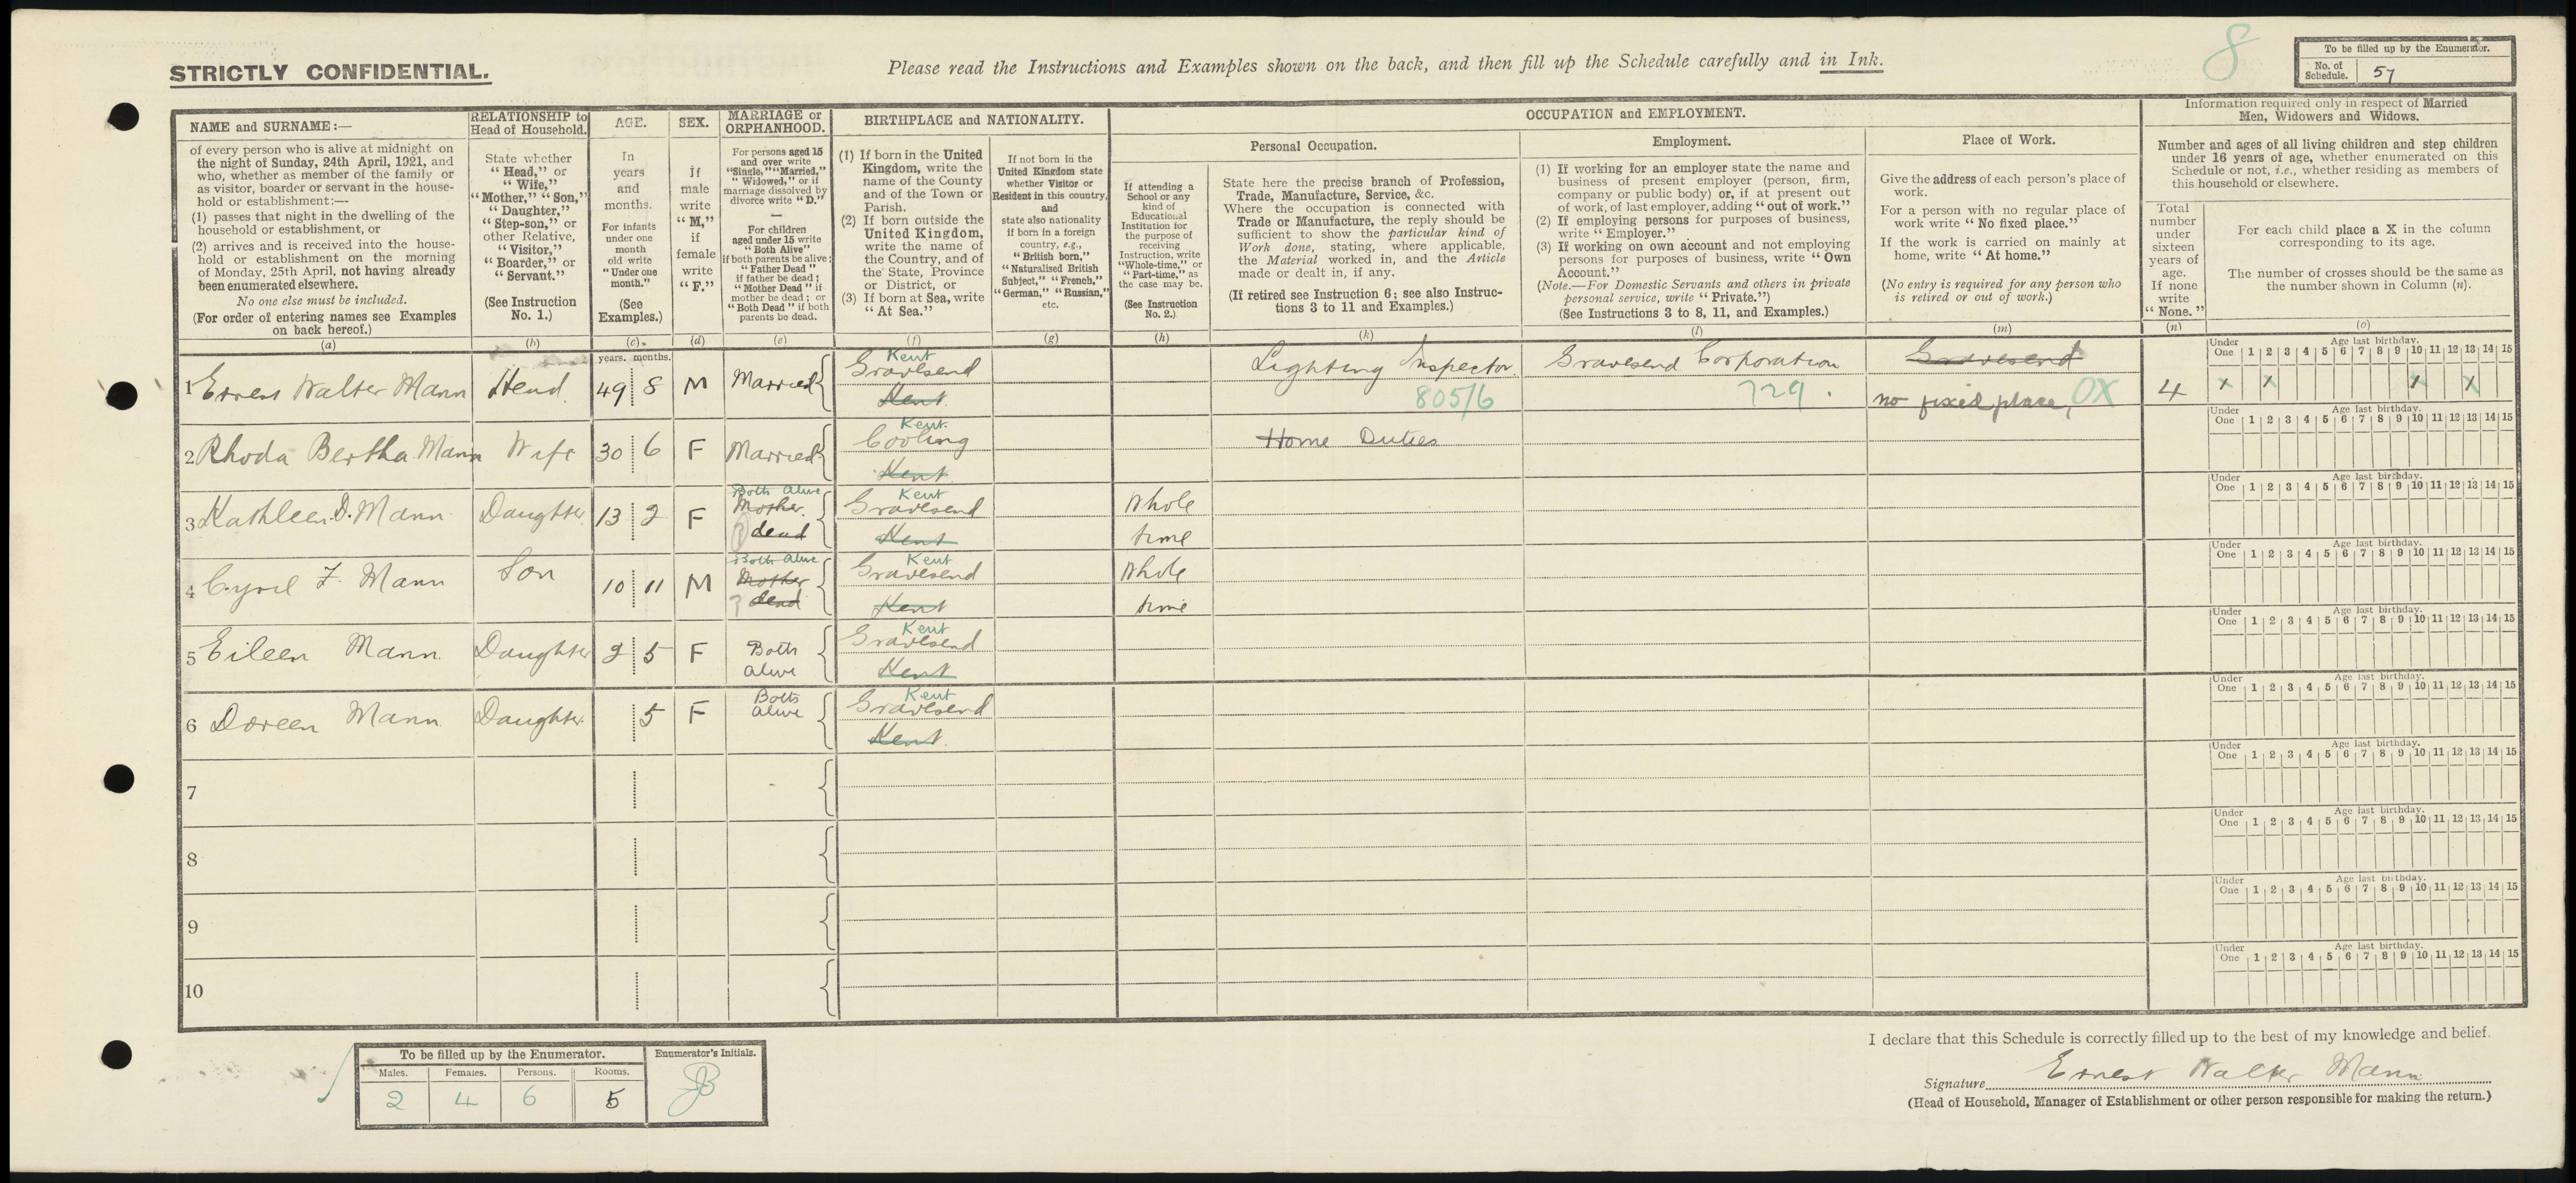 STRICTLY CONFIDENTIAL.
Please read the Instructions and Examples shown on the back, and then fill up the Schedule carefully and in Ink.
8
To be filled up by the Enumerator.
No. of Schedule. 57
NAME and SURNAME:—
of every person who is alive at midnight on
the night of Sunday, 24th April, 1921, and
who, whether as member of the family or
as visitor, boarder or servant in the house-
hold or establishment:—
(1) passes that night in the dwelling of the
household or establishment, or
(2) arrives and is received into the house-
hold or establishment on the morning
of Monday, 25th April, not having already
been enumerated elsewhere.
No one else must be included.
(For order of entering names see Examples
on back hereof.)
(a)
RELATIONSHIP to
Head of Household.
State whether
"Head," or
"Wife,"
"Mother," "Son,"
"Daughter,"
"Step-son," or
other Relative,
"Visitor,"
"Boarder," or
"Servant."
(See Instruction
No. 1.)
(b)
AGE.
In
years
and
months.
For infants
under one
month
old write
"Under one
month."
(See
Examples.)
(c)
SEX.
If
male
write
"M,"
if
female
write
"F."
(d)
MARRIAGE or
ORPHANHOOD.
For persons aged 15
and over write
"Single," "Married,"
"Widowed," or if
marriage dissolved by
divorce write "D."
—
For children
aged under 15 write
"Both Alive"
if both parents be alive;
"Father Dead"
if father be dead;
"Mother Dead" if
mother be dead; or
"Both Dead" if both
parents be dead.
(e)
BIRTHPLACE and NATIONALITY.
(1) If born in the United
Kingdom, write the
name of the County
and of the Town or
Parish.
(2) If born outside the
United Kingdom,
write the name of
the Country, and of
the State, Province
or District, or
(3) If born at Sea, write
"At Sea."
(f)
If not born in the
United Kingdom state
whether Visitor or
Resident in this country,
and
state also nationality
if born in a foreign
country, e.g.,
"British born,"
"Naturalised British
Subject," "French,"
"German," "Russian,"
etc.
(g)
OCCUPATION and EMPLOYMENT.
If attending a
School or any
kind of
Educational
Institution for
the purpose of
receiving
Instruction, write
"Whole-time," or
"Part-time," as
the case may be.
(See Instruction
No. 2.)
(h)
Personal Occupation.
State here the precise branch of Profession,
Trade, Manufacture, Service, &c.
Where the occupation is connected with
Trade or Manufacture, the reply should be
sufficient to show the particular kind of
Work done, stating, where applicable,
the Material worked in, and the Article
made or dealt in, if any.
(If retired see Instruction 6; see also Instruc-
tions 3 to 11 and Examples.)
(k)
Employment.
(1) If working for an employer state the name and
business of present employer (person, firm,
company or public body) or, if at present out
of work, of last employer, adding "out of work."
(2) If employing persons for purposes of business,
write "Employer."
(3) If working on own account and not employing
persons for purposes of business, write "Own
Account."
(Note.—For Domestic Servants and others in private
personal service, write "Private.")
(See Instructions 3 to 8, 11, and Examples.)
(l)
Place of Work.
Give the address of each person's place of
work.
For a person with no regular place of
work write "No fixed place."
If the work is carried on mainly at
home, write "At home."
(No entry is required for any person who
is retired or out of work.)
(m)
Information required only in respect of Married
Men, Widowers and Widows.
Number and ages of all living children and step children
under 16 years of age, whether enumerated on this
Schedule or not, i.e., whether residing as members of
this household or elsewhere.
Total
number
under
sixteen
years of
age.
If none
write
"None."
(n)
For each child place a X in the column
corresponding to its age.
The number of crosses should be the same as
the number shown in Column (n).
(o)
years. months.
1 Ernest Walter Mann Head. 49 8 M Married Kent Gravesend Kent Lighting Inspector. 805/6 Gravesend Corporation 729 Gravesend no fixed place, OX 4
Under One 1 2 3 4 5 6 7 8 9 10 11 12 13 14 15 Age last birthday.
X X X X
2 Rhoda Bertha Mann Wife 30 6 F Married Kent Cooling Kent Home Duties
Under One 1 2 3 4 5 6 7 8 9 10 11 12 13 14 15 Age last birthday.
3 Kathleen D. Mann Daughter 13 2 F Both Alive Mother dead Kent Gravesend Kent Whole time
Under One 1 2 3 4 5 6 7 8 9 10 11 12 13 14 15 Age last birthday.
4 Cyril F. Mann Son 10 11 M Both Alive Mother ? dead Kent Gravesend Kent Whole time
Under One 1 2 3 4 5 6 7 8 9 10 11 12 13 14 15 Age last birthday.
5 Eileen Mann Daughter 2 5 F Both alive Kent Gravesend Kent
Under One 1 2 3 4 5 6 7 8 9 10 11 12 13 14 15 Age last birthday.
6 Doreen Mann Daughter 5 F Both alive Kent Gravesend Kent
Under One 1 2 3 4 5 6 7 8 9 10 11 12 13 14 15 Age last birthday.
7
Under One 1 2 3 4 5 6 7 8 9 10 11 12 13 14 15 Age last birthday.
8
Under One 1 2 3 4 5 6 7 8 9 10 11 12 13 14 15 Age last birthday.
9
Under One 1 2 3 4 5 6 7 8 9 10 11 12 13 14 15 Age last birthday.
10
Under One 1 2 3 4 5 6 7 8 9 10 11 12 13 14 15 Age last birthday.
To be filled up by the Enumerator.
Enumerator's Initials.
Males. Females. Persons. Rooms.
2 4 6 5
I declare that this Schedule is correctly filled up to the best of my knowledge and belief.
Signature Ernest Walter Mann
(Head of Household, Manager of Establishment or other person responsible for making the return.)